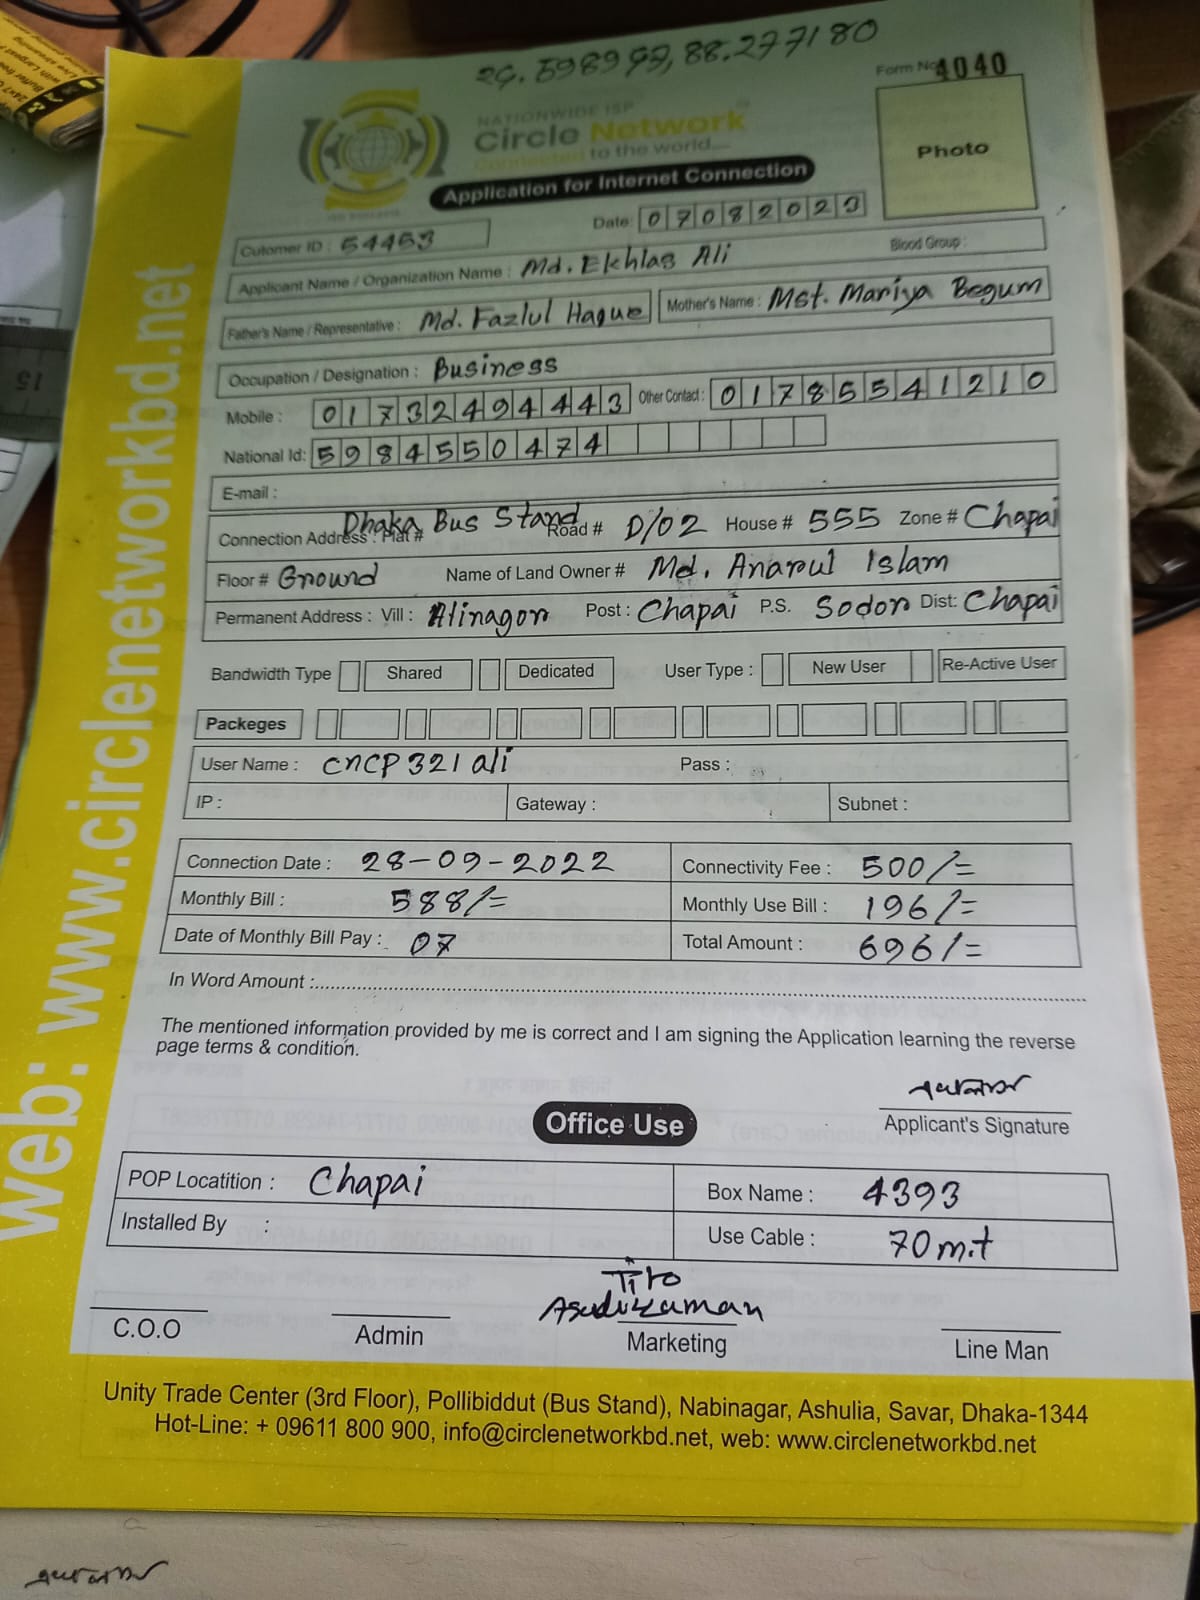 24.598993, 88.277180
Form No 4040
NATIONWIDE ISP
Circle Network
Connected to the world....
Photo
Application for Internet Connection
Date: 07082023
Cutomer ID : 54453
Applicant Name / Organization Name : Md. Ekhlas Ali Blood Group :
Father's Name / Representative : Md. Fazlul Haque Mother's Name : Mst. Mariya Begum
Occupation / Designation : Business
Mobile : 01732494443 Other Contact : 01785541210
National Id: 5984550474
E-mail :
Connection Address : Plat # Dhaka Bus Stand Road # D/02 House # 555 Zone # Chapai
Floor # Ground Name of Land Owner # Md. Anarul Islam
Permanent Address : Vill : Alinagor Post : Chapai P.S. Sodor Dist: Chapai
Bandwidth Type Shared Dedicated User Type : New User Re-Active User
Packeges
User Name : cncp321ali Pass :
IP : Gateway : Subnet :
Connection Date : 28-09-2022 Connectivity Fee : 500/=
Monthly Bill : 588/= Monthly Use Bill : 196/=
Date of Monthly Bill Pay : 07 Total Amount : 696/=
In Word Amount :
The mentioned information provided by me is correct and I am signing the Application learning the reverse
page terms & condition.
Applicant's Signature
Office Use
POP Locatition : Chapai Box Name : 4393
Installed By : Use Cable : 70 m.t
Asaduzzaman
C.O.O Admin Marketing Line Man
Unity Trade Center (3rd Floor), Pollibiddut (Bus Stand), Nabinagar, Ashulia, Savar, Dhaka-1344
Hot-Line: + 09611 800 900, info@circlenetworkbd.net, web: www.circlenetworkbd.net
web: www.circlenetworkbd.net
15